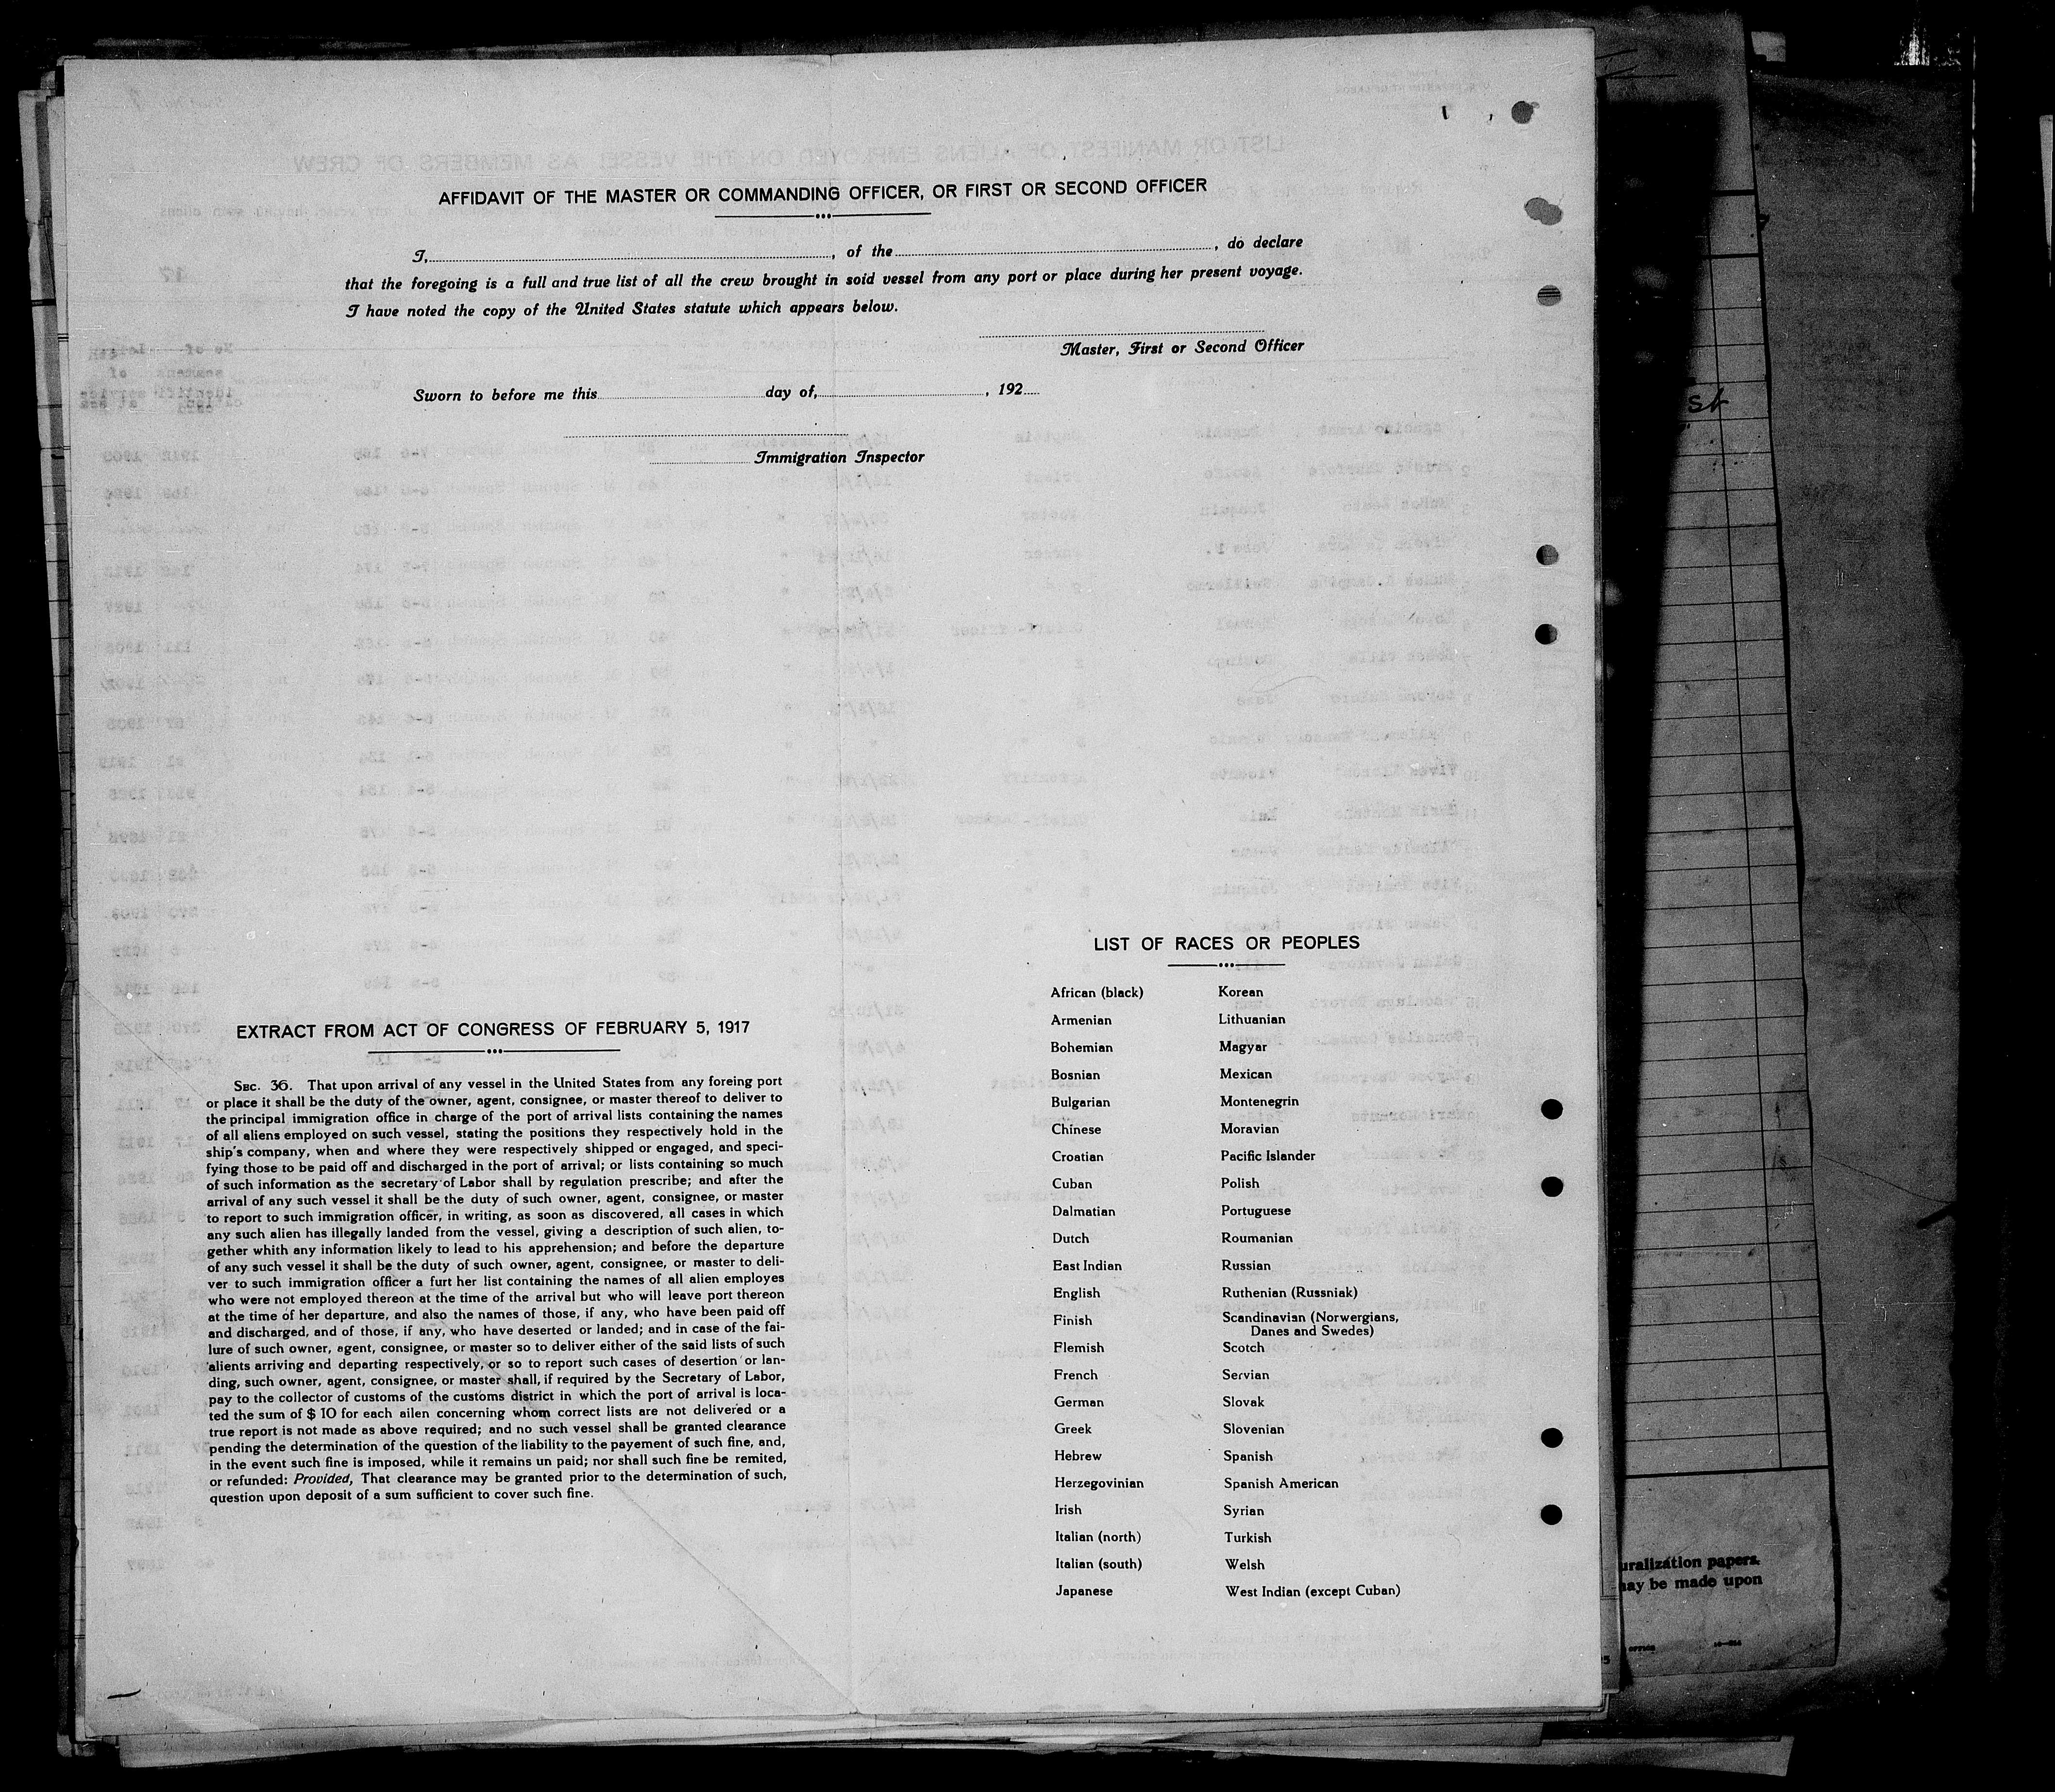 AFFIDAVIT OF THE MASTER OR COMMANDING OFFICER, OR FIRST OR SECOND OFFICER
I, , of the , do declare
that the foregoing is a full and true list of all the crew brought in soid vessel from any port or place during her present voyage.
I have noted the copy of the United States statute which appears below.
Master, First or Second Officer
Sworn to before me this day of, , 192
Immigration Inspector
EXTRACT FROM ACT OF CONGRESS OF FEBRUARY 5, 1917
SEC. 36. That upon arrival of any vessel in the United States from any foreing port
or place it shall be the duty of the owner, agent, consignee, or master thereof to deliver to
the principal immigration office in charge of the port of arrival lists containing the names
of all aliens employed on such vessel, stating the positions they respectively hold in the
ship's company, when and where they were respectively shipped or engaged, and speci-
fying those to be paid off and discharged in the port of arrival; or lists containing so much
of such information as the secretary of Labor shall by regulation prescribe; and after the
arrival of any such vessel it shall be the duty of such owner, agent, consignee, or master
to report to such immigration officer, in writing, as soon as discovered, all cases in which
any such alien has illegally landed from the vessel, giving a description of such alien, to-
gether whith any information likely to lead to his apprehension; and before the departure
of any such vessel it shall be the duty of such owner, agent, consignee, or master to deli-
ver to such immigration officer a furt her list containing the names of all alien employes
who were not employed thereon at the time of the arrival but who will leave port thereon
at the time of her departure, and also the names of those, if any, who have been paid off
and discharged, and of those, if any, who have deserted or landed; and in case of the fai-
lure of such owner, agent, consignee, or master so to deliver either of the said lists of such
alients arriving and departing respectively, or so to report such cases of desertion or lan-
ding, such owner, agent, consignee, or master shall, if required by the Secretary of Labor,
pay to the collector of customs of the customs district in which the port of arrival is loca-
ted the sum of $ 10 for each ailen concerning whom correct lists are not delivered or a
true report is not made as above required; and no such vessel shall be granted clearance
pending the determination of the question of the liability to the payement of such fine, and,
in the event such fine is imposed, while it remains un paid; nor shall such fine be remited,
or refunded: Provided, That clearance may be granted prior to the determination of such,
question upon deposit of a sum sufficient to cover such fine.
LIST OF RACES OR PEOPLES
African (black) Korean
Armenian Lithuanian
Bohemian Magyar
Bosnian Mexican
Bulgarian Montenegrin
Chinese Moravian
Croatian Pacific Islander
Cuban Polish
Dalmatian Portuguese
Dutch Roumanian
East Indian Russian
English Ruthenian (Russniak)
Finish Scandinavian (Norwergians,
Danes and Swedes)
Flemish Scotch
French Servian
German Slovak
Greek Slovenian
Hebrew Spanish
Herzegovinian Spanish American
Irish Syrian
Italian (north) Turkish
Italian (south) Welsh
Japanese West Indian (except Cuban)
uralization papers.
may be made upon